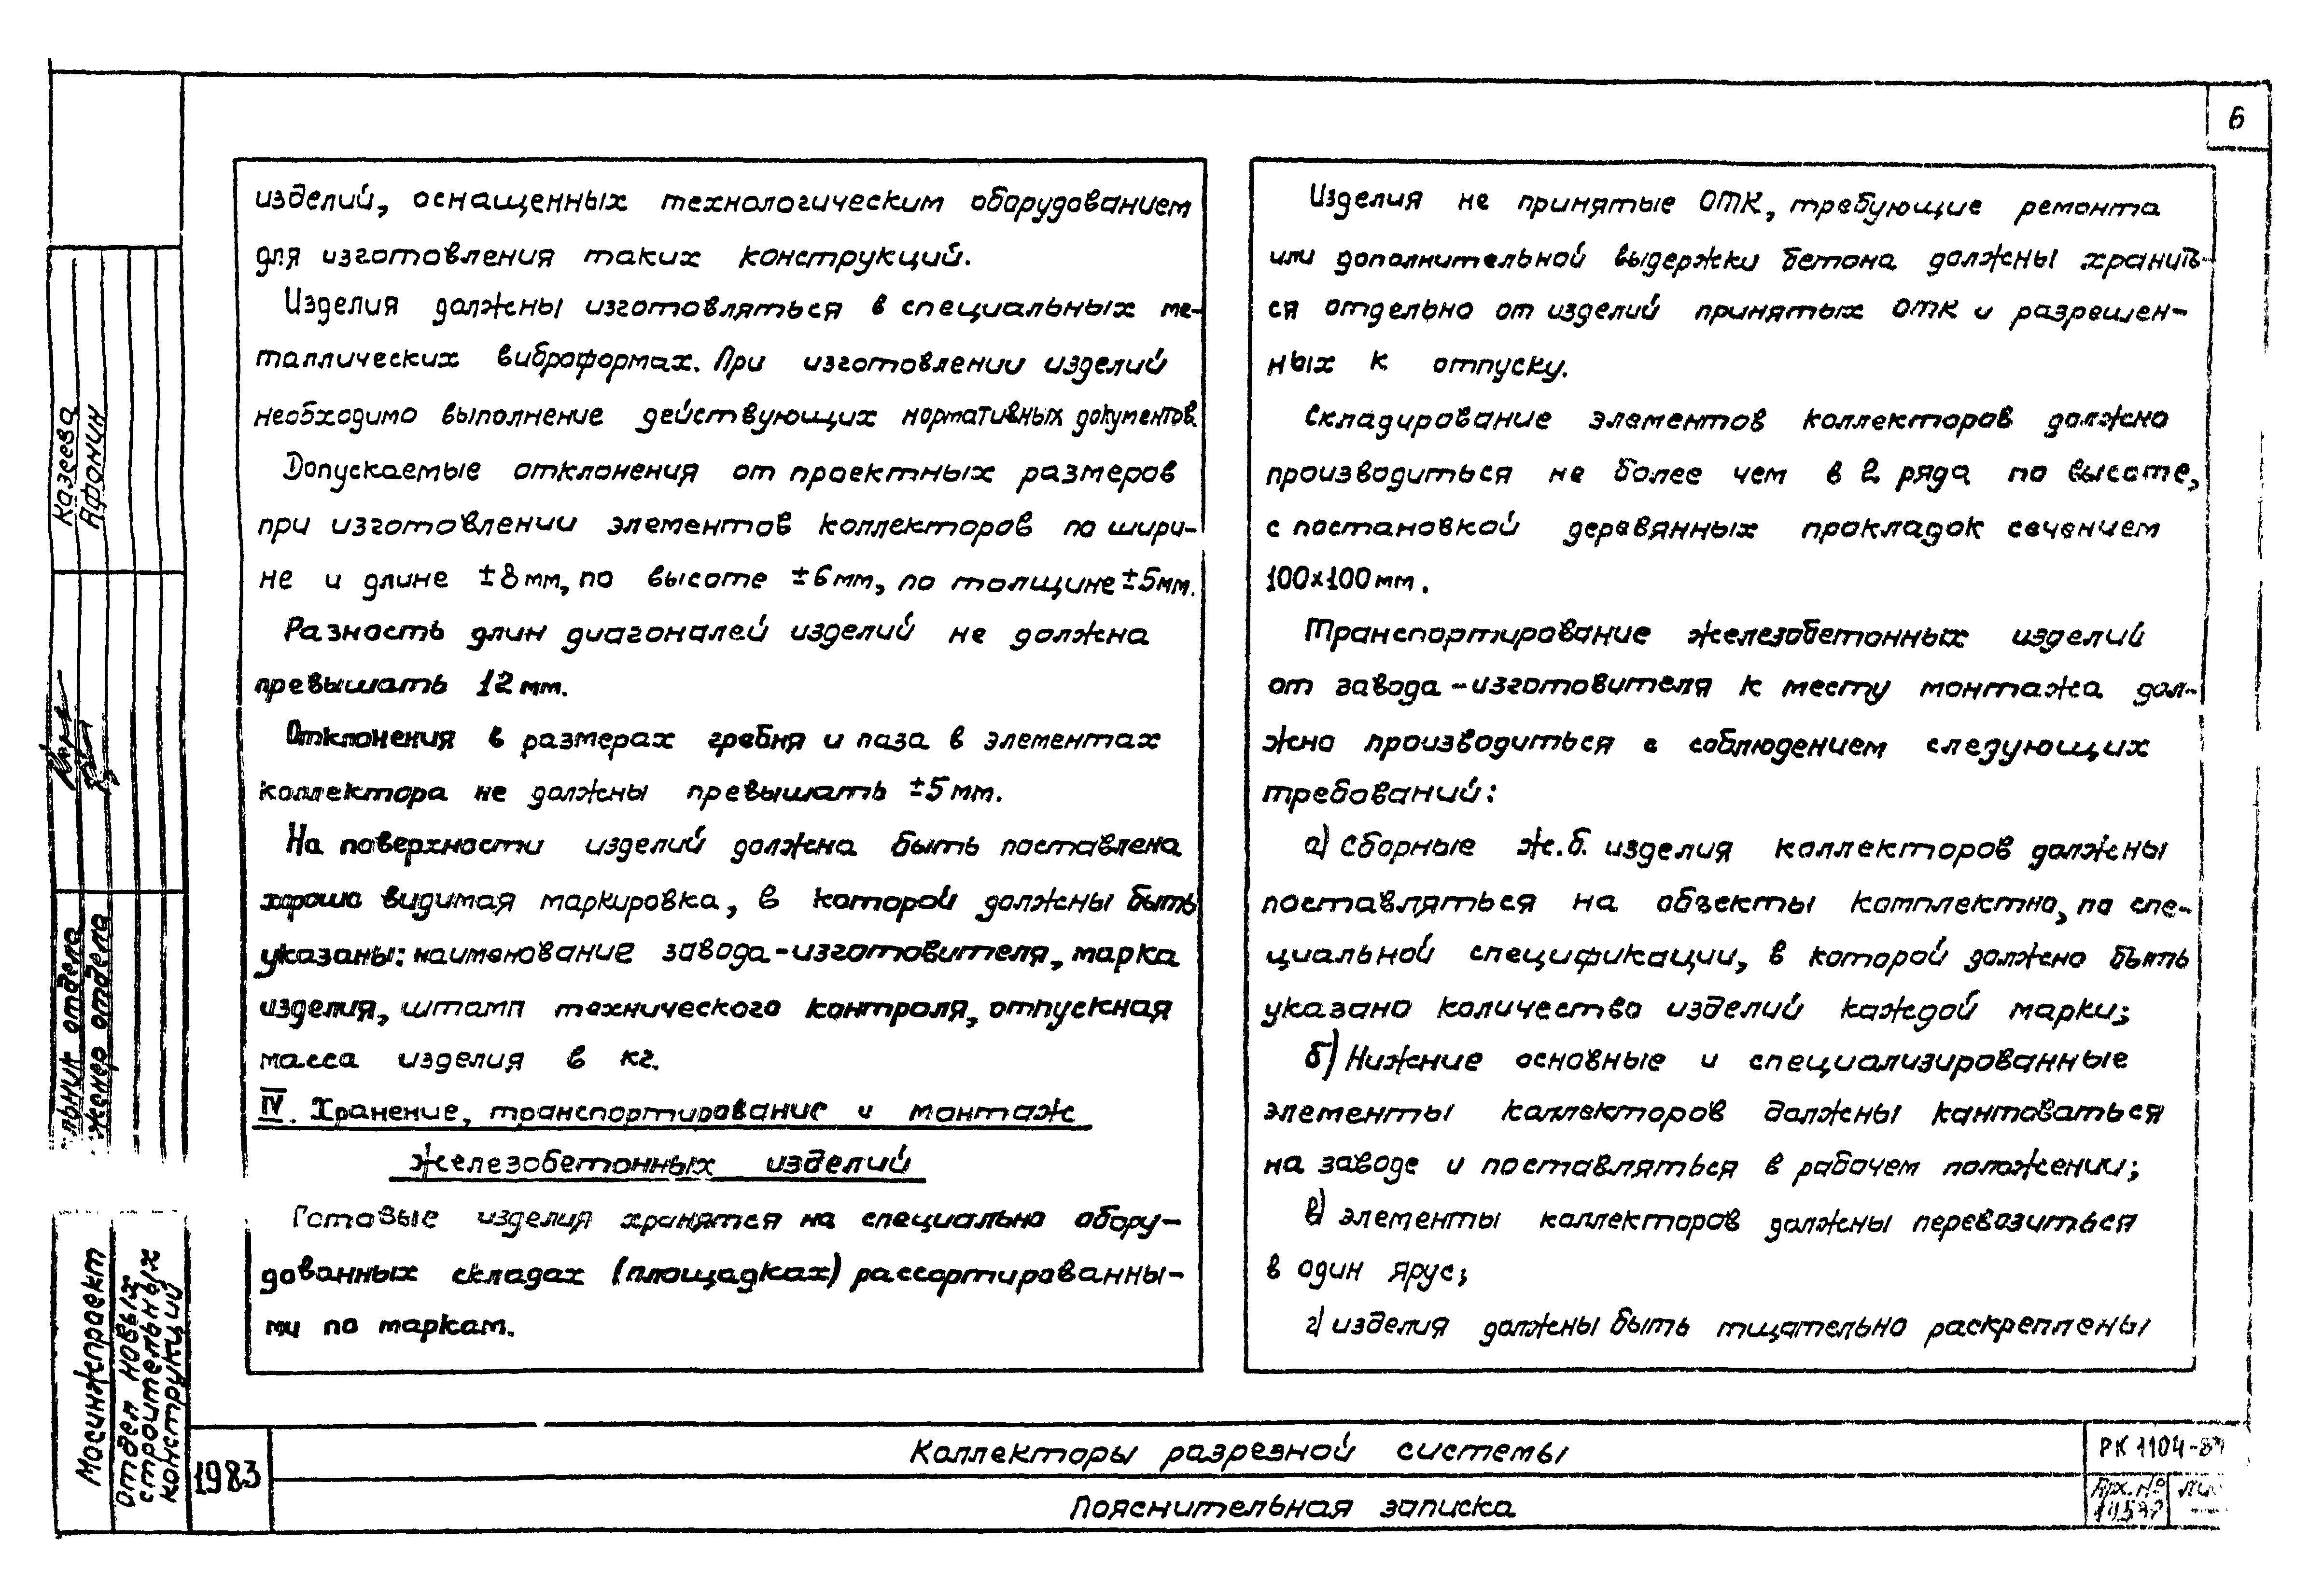 6
изделий, оснащенных технологическим оборудованием
для изготовления таких конструкций.
Изделия должны изготовляться в специальных ме-
таллических виброформах. При изготовлении изделий
необходимо выполнение действующих нормативных документов.
Допускаемые отклонения от проектных размеров
при изготовлении элементов коллекторов по шири-
не и длине ±8мм, по высоте ±6мм, по толщине ±5мм.
Разность длин диагоналей изделий не должна
превышать 12мм.
Отклонения в размерах гребня и паза в элементах
коллектора не должны превышать ±5мм.
На поверхности изделий должна быть поставлена
хорошо видимая маркировка, в которой должны быть
указаны: наименование завода-изготовителя, марка
изделия, штамп технического контроля, отпускная
масса изделия в кг.
IV. Хранение, транспортирование и монтаж
железобетонных изделий
Готовые изделия хранятся на специально обору-
дованных складах (площадках) рассортированны-
ми по маркам.
Изделия не принятые ОТК, требующие ремонта
или дополнительной выдержки бетона должны хранить-
ся отдельно от изделий принятых ОТК и разрешен-
ных к отпуску.
Складирование элементов коллекторов должно
производиться не более чем в 2 ряда по высоте,
с постановкой деревянных прокладок сечением
100х100мм.
Транспортирование железобетонных изделий
от завода-изготовителя к месту монтажа дол-
жно производиться с соблюдением следующих
требований:
а) Сборные ж.б. изделия коллекторов должны
поставляться на объекты комплектно, по спе-
циальной спецификации, в которой должно быть
указано количество изделий каждой марки;
б) Нижние основные и специализированные
элементы коллекторов должны кантоваться
на заводе и поставляться в рабочем положении;
в) элементы коллекторов должны перевозиться
в один ярус;
г) изделия должны быть тщательно раскреплены
Казеева
Афонин
льник отдела
женер отдела
Мосинжпроект
Отдел новых
строительных
конструкций
1983
Коллекторы разрезной системы
Пояснительная записка
РК 1104-8
Арх. №